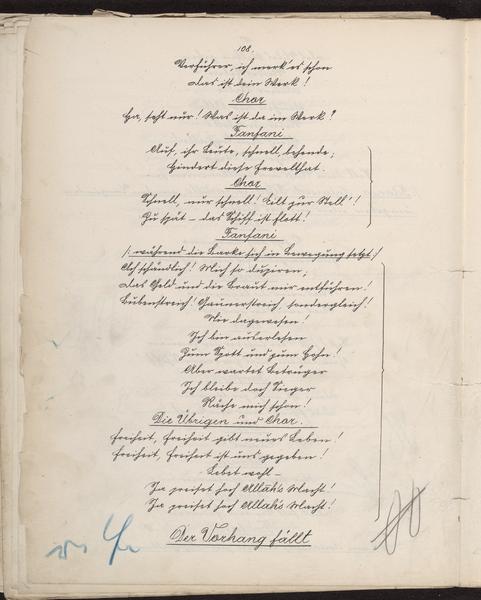 108
Verführer, ich merk' es schon
Das ist dein Werk!
Chor
Ha, seht nur! Was ist da im Werk?
Fanfani
Auf, ihr Leute, schnell, behende,
Hindert diese Frevelthat.
Chor
Schnell, nur schnell! Eilt zur Stell'!
Zu spät – das Schiff ist flott!
Fanfani
/: während die Barke sich in Bewegung setzt :/
Ach schändlich! Mich so düpiren,
Das Geld und die Braut mir entführen!
Bubenstreich! Gaunerstreich, sondergleich!
Nie dagewesen!
Ich bin auserlesen
Zum Spott und zum Hohn!
Aber wartet Betrüger
Ich bleibe doch Sieger
Räche mich schon!
Die Übrigen und Chor.
Freiheit, Freiheit gibt neues Leben!
Freiheit, Freiheit ist uns gegeben!
Lebet wohl –
Ja preiset hoch Allah's Macht!
Ja preiset hoch Allah's Macht!
Der Vorhang fällt